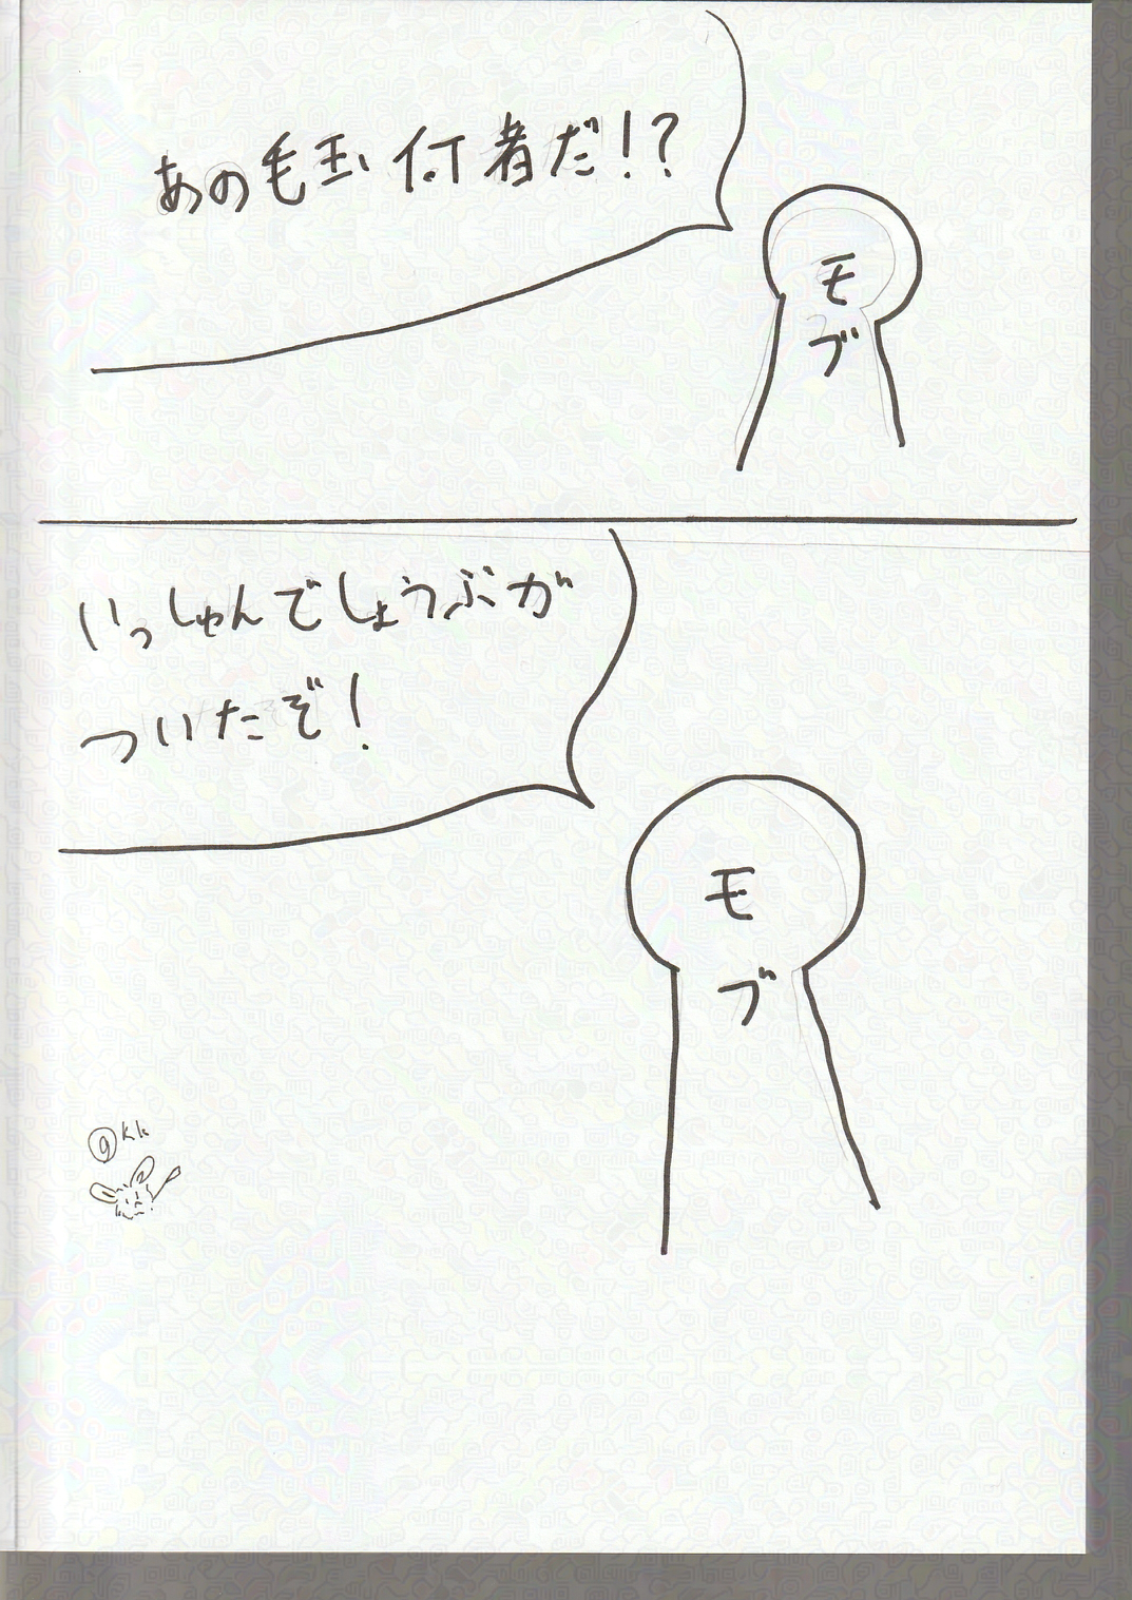 あの毛玉何者だ!?
モブ
いっしゅんでしょうぶが
ついたぞ!
モブ
9kk